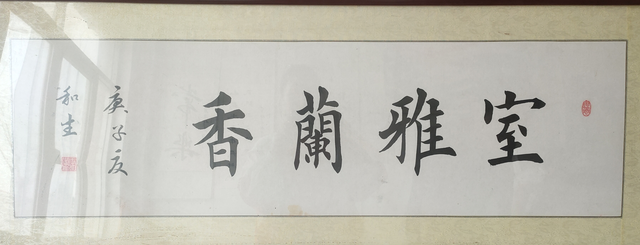 室雅蘭香
庚子夏
和生